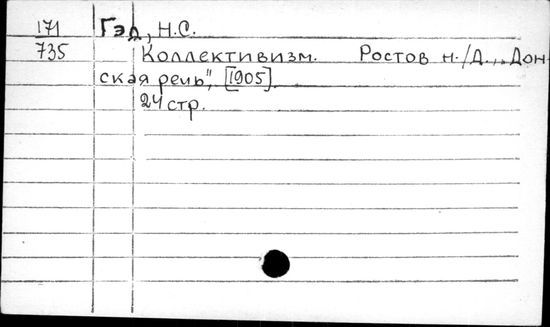 171 Гэд, Н.С.
735 Коллективизм. Ростов н./Д., „Дон-
ская речь", [1905].
24 стр.